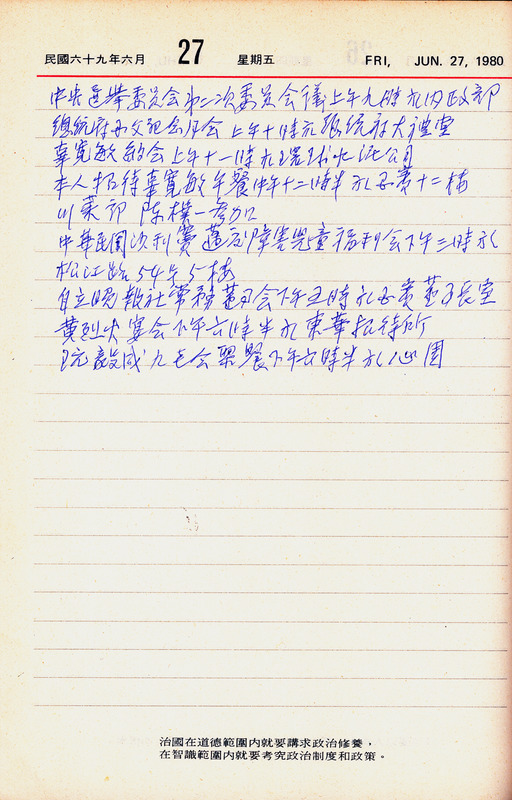 民國六十九年六月 27 星期五 FRI, JUN. 27, 1980
中央選舉委員会第二次委員会議上午九時於内政部
總統府國父紀念月会上午十時於總統府大禮堂
辜寬敏約会上午十一時於環球水泥公司
本人招待辜寬敏午餐中午十二時半於國賓十二樓
川菜部 陳樸一參加
中華民國沙利賓董感障害兒童福利会下午三時於
松江路54号5樓
自立晚報社常務董事会下午五時於國賓董事長室
黄烈火宴会下午六時半於東華招待所
阮毅成九老会聚餐下午六時半於心園
治國在道德範圍內就要講求政治修養，
在智識範圍內就要考究政治制度和政策。